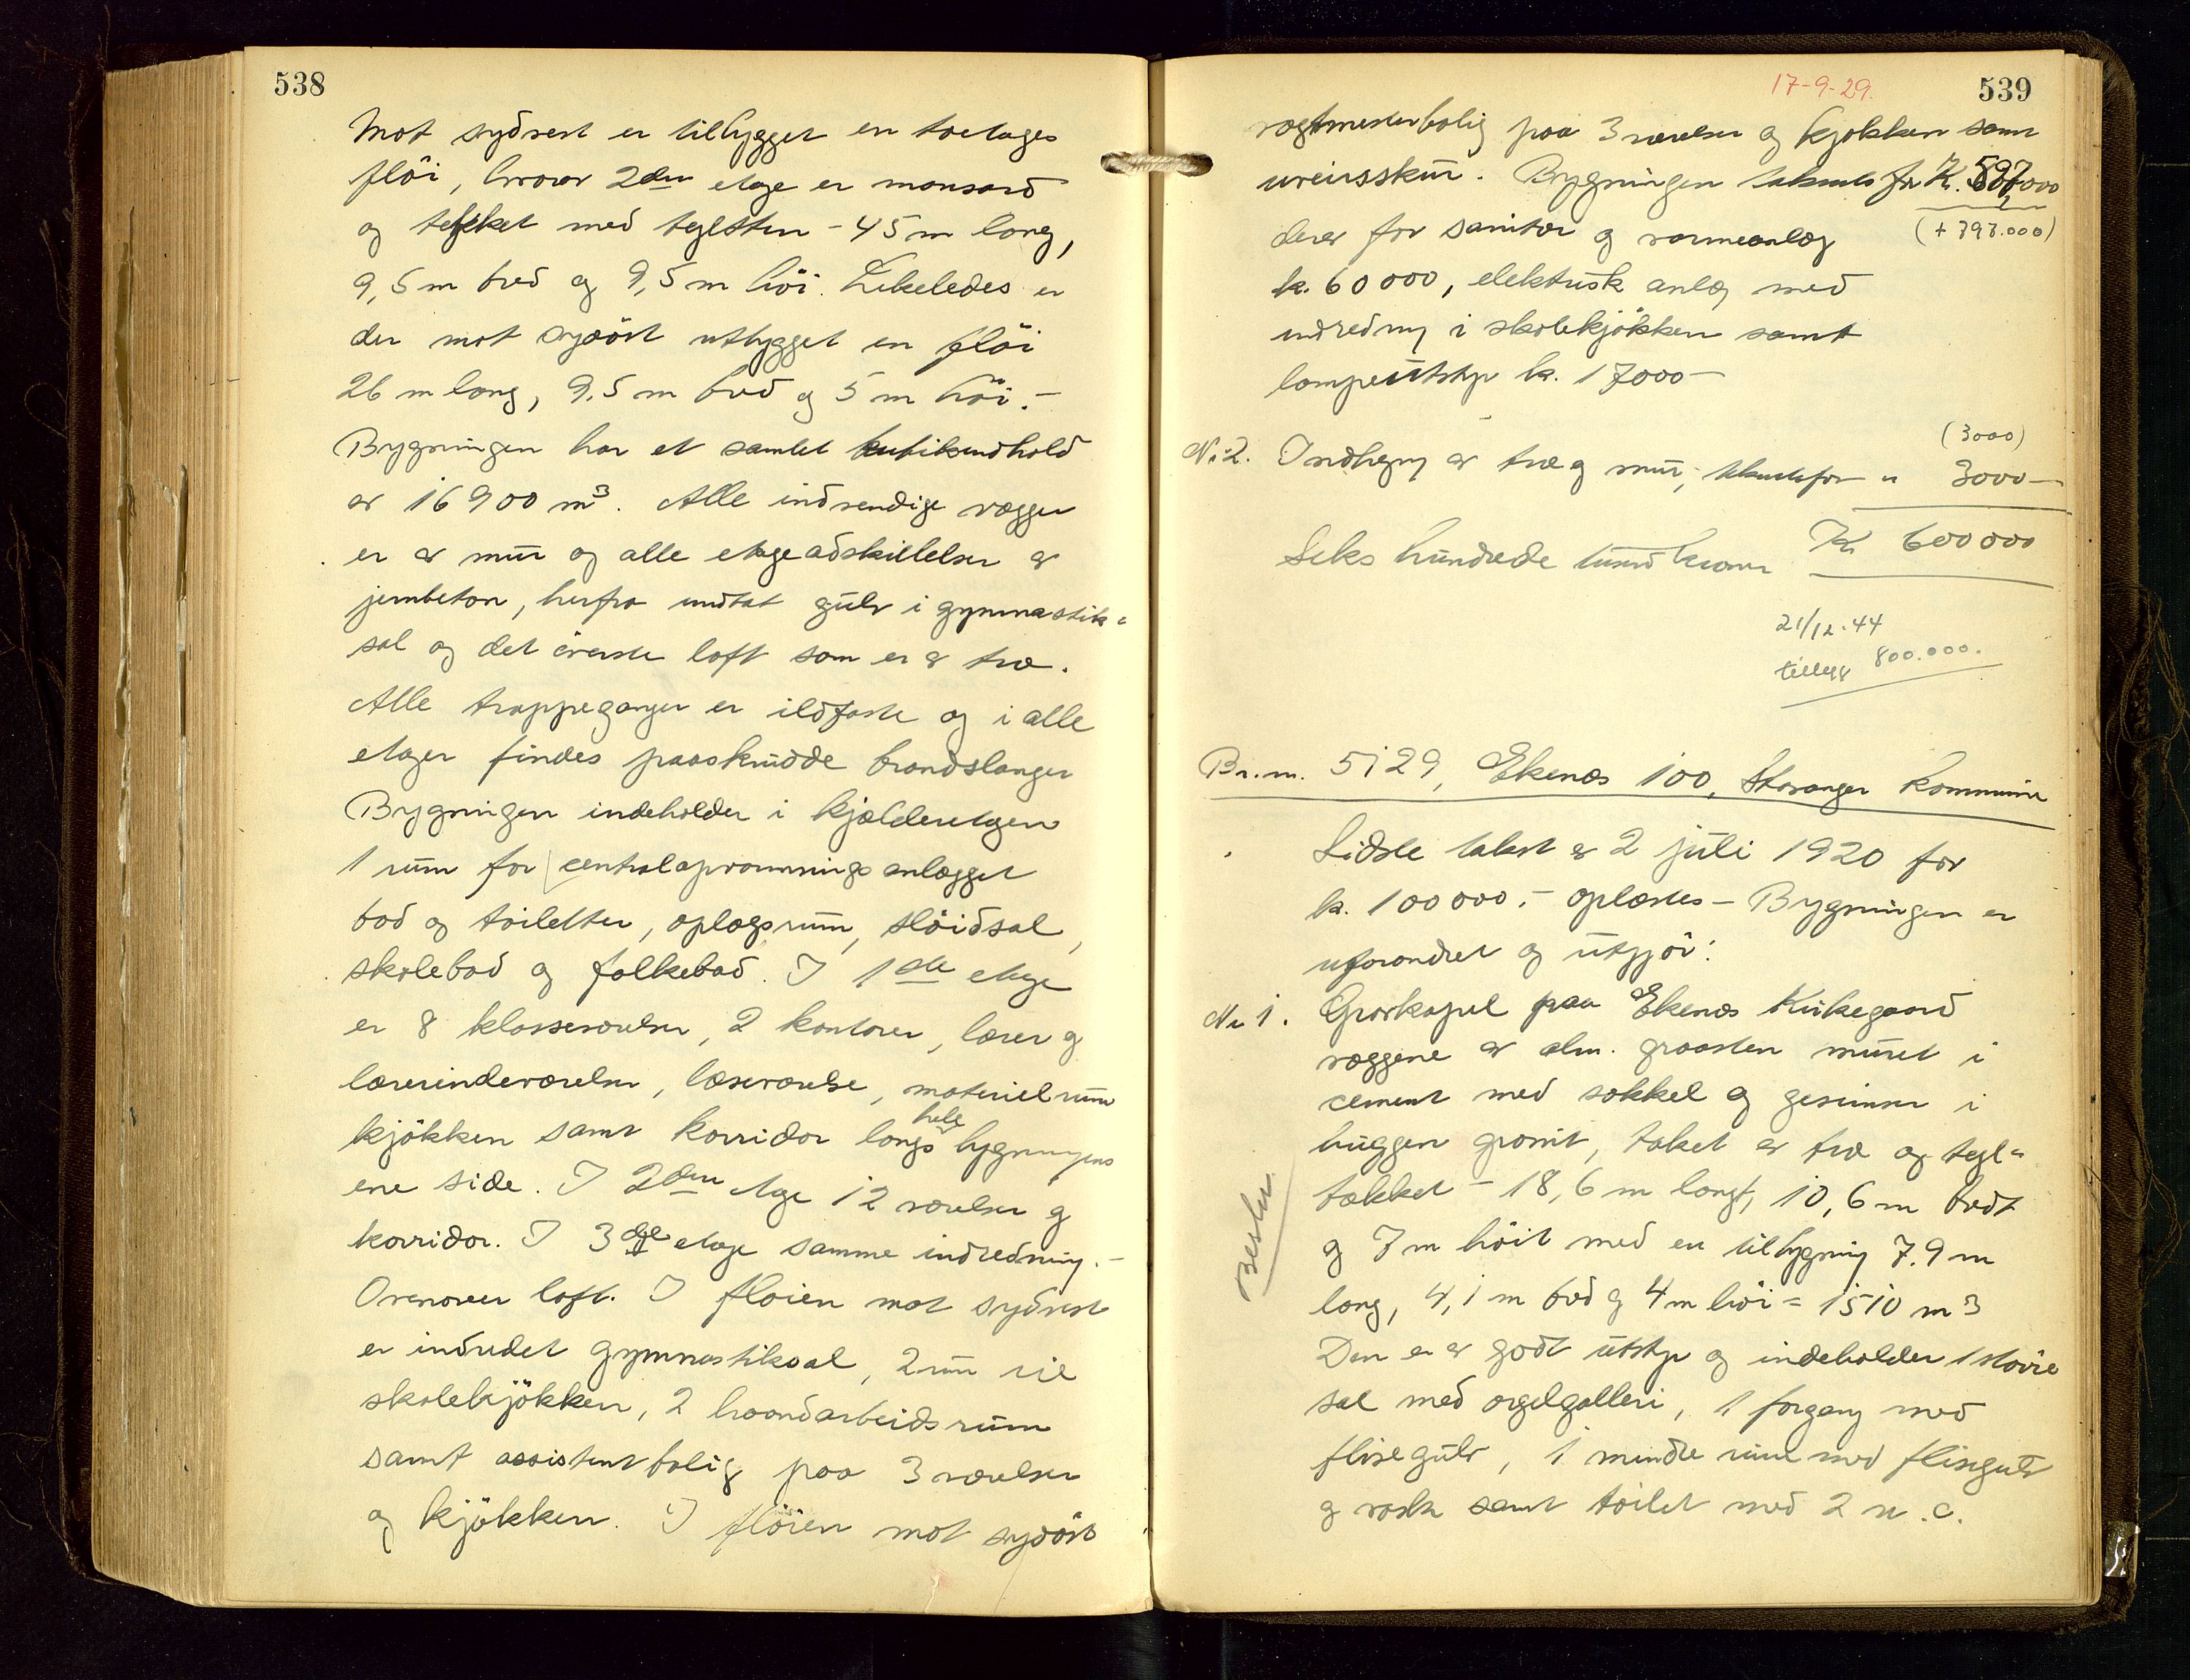 538
Mot sydvest er tilbygget en toetages
flöi, hvorav 2den etage er mansard
og tekket med teglsten - 45 m lang,
9,5 m bred og 9,5 m höi. Likeledes er
der mot sydöst utbygget en flöi
26 m lang, 9,5 m bred og 5 m höi.-
Bygningen har et samlet kubikindhold
av 16900 m³. Alle indvendige vægger
er av mur og alle etageadskillelser av
jernbeton, herfra undtat gulv i gymnastik=
sal og det överste loft som er av træ.
Alle trappeganger er ildfaste og i alle
etager findes paaskrudde brandslanger
Bygningen indeholder i kjælderetagen
1 rum for centralopvarmnings anlægget
bad og toiletter, oplagsrum, slöidsal,
skolebad og folkebad. I 1ste etage
er 8 klasseværelser, 2 kontorer, lærer og
lærerindeværelser, læseværelse, materielrum
kjökken samt korridor langs hele bygningens
ene side. I 2den etage 12 værelser og
korridor. I 3dje etage samme indredning.-
Ovenover loft. I flöien mot sydvest
er indredet gymnastiksal, 2 rum til
skolekjökken, 2 haandarbeidsrum
samt assistentbolig paa 3 værelser
og kjökken. I flöien mot sydöst
17-9-29.
539
vagtmesterbolig paa 3 værelser og kjökken samt
ureinsskur. Bygningen takseres for K. 597000
derav for sanitær og varmeanlæg (+ 797.000)
k. 60000, elektrisk anlæg med
indredning i skolekjökken samt
lampeutstyr k. 17000-
(3000)
No 2. Indhegning av træ og mur, takseres for " 3000-
Seks hundrede tusend kroner Kr 600000
21/12-44
tillegg 800.000.
Br.nr. 5129, Ekenæs 100, Stavanger kommune
Sidste takst av 2 juli 1920 for
k. 100000.- oplæstes - Bygningen er
uforandret og utgjör:
No 1. Gravkapel paa Ekenæs Kirkegaard
væggene av alm. graasten muret i
cement med sokkel og gesimser i
huggen granit, taket av træ og tegl=
tækket - 18,6 m langt, 10,6 m bredt
og 7 m höit med en tilbygning 7.9 m
lang, 4,1 m bred og 4 m höi = 1510 m3
Den er av godt utstyr og indeholder 1 större
sal med orgelgalleri, 1 forgang med
flisegulv, 1 mindre rum med flisegulv
og vask samt toilet med 2 w.c.